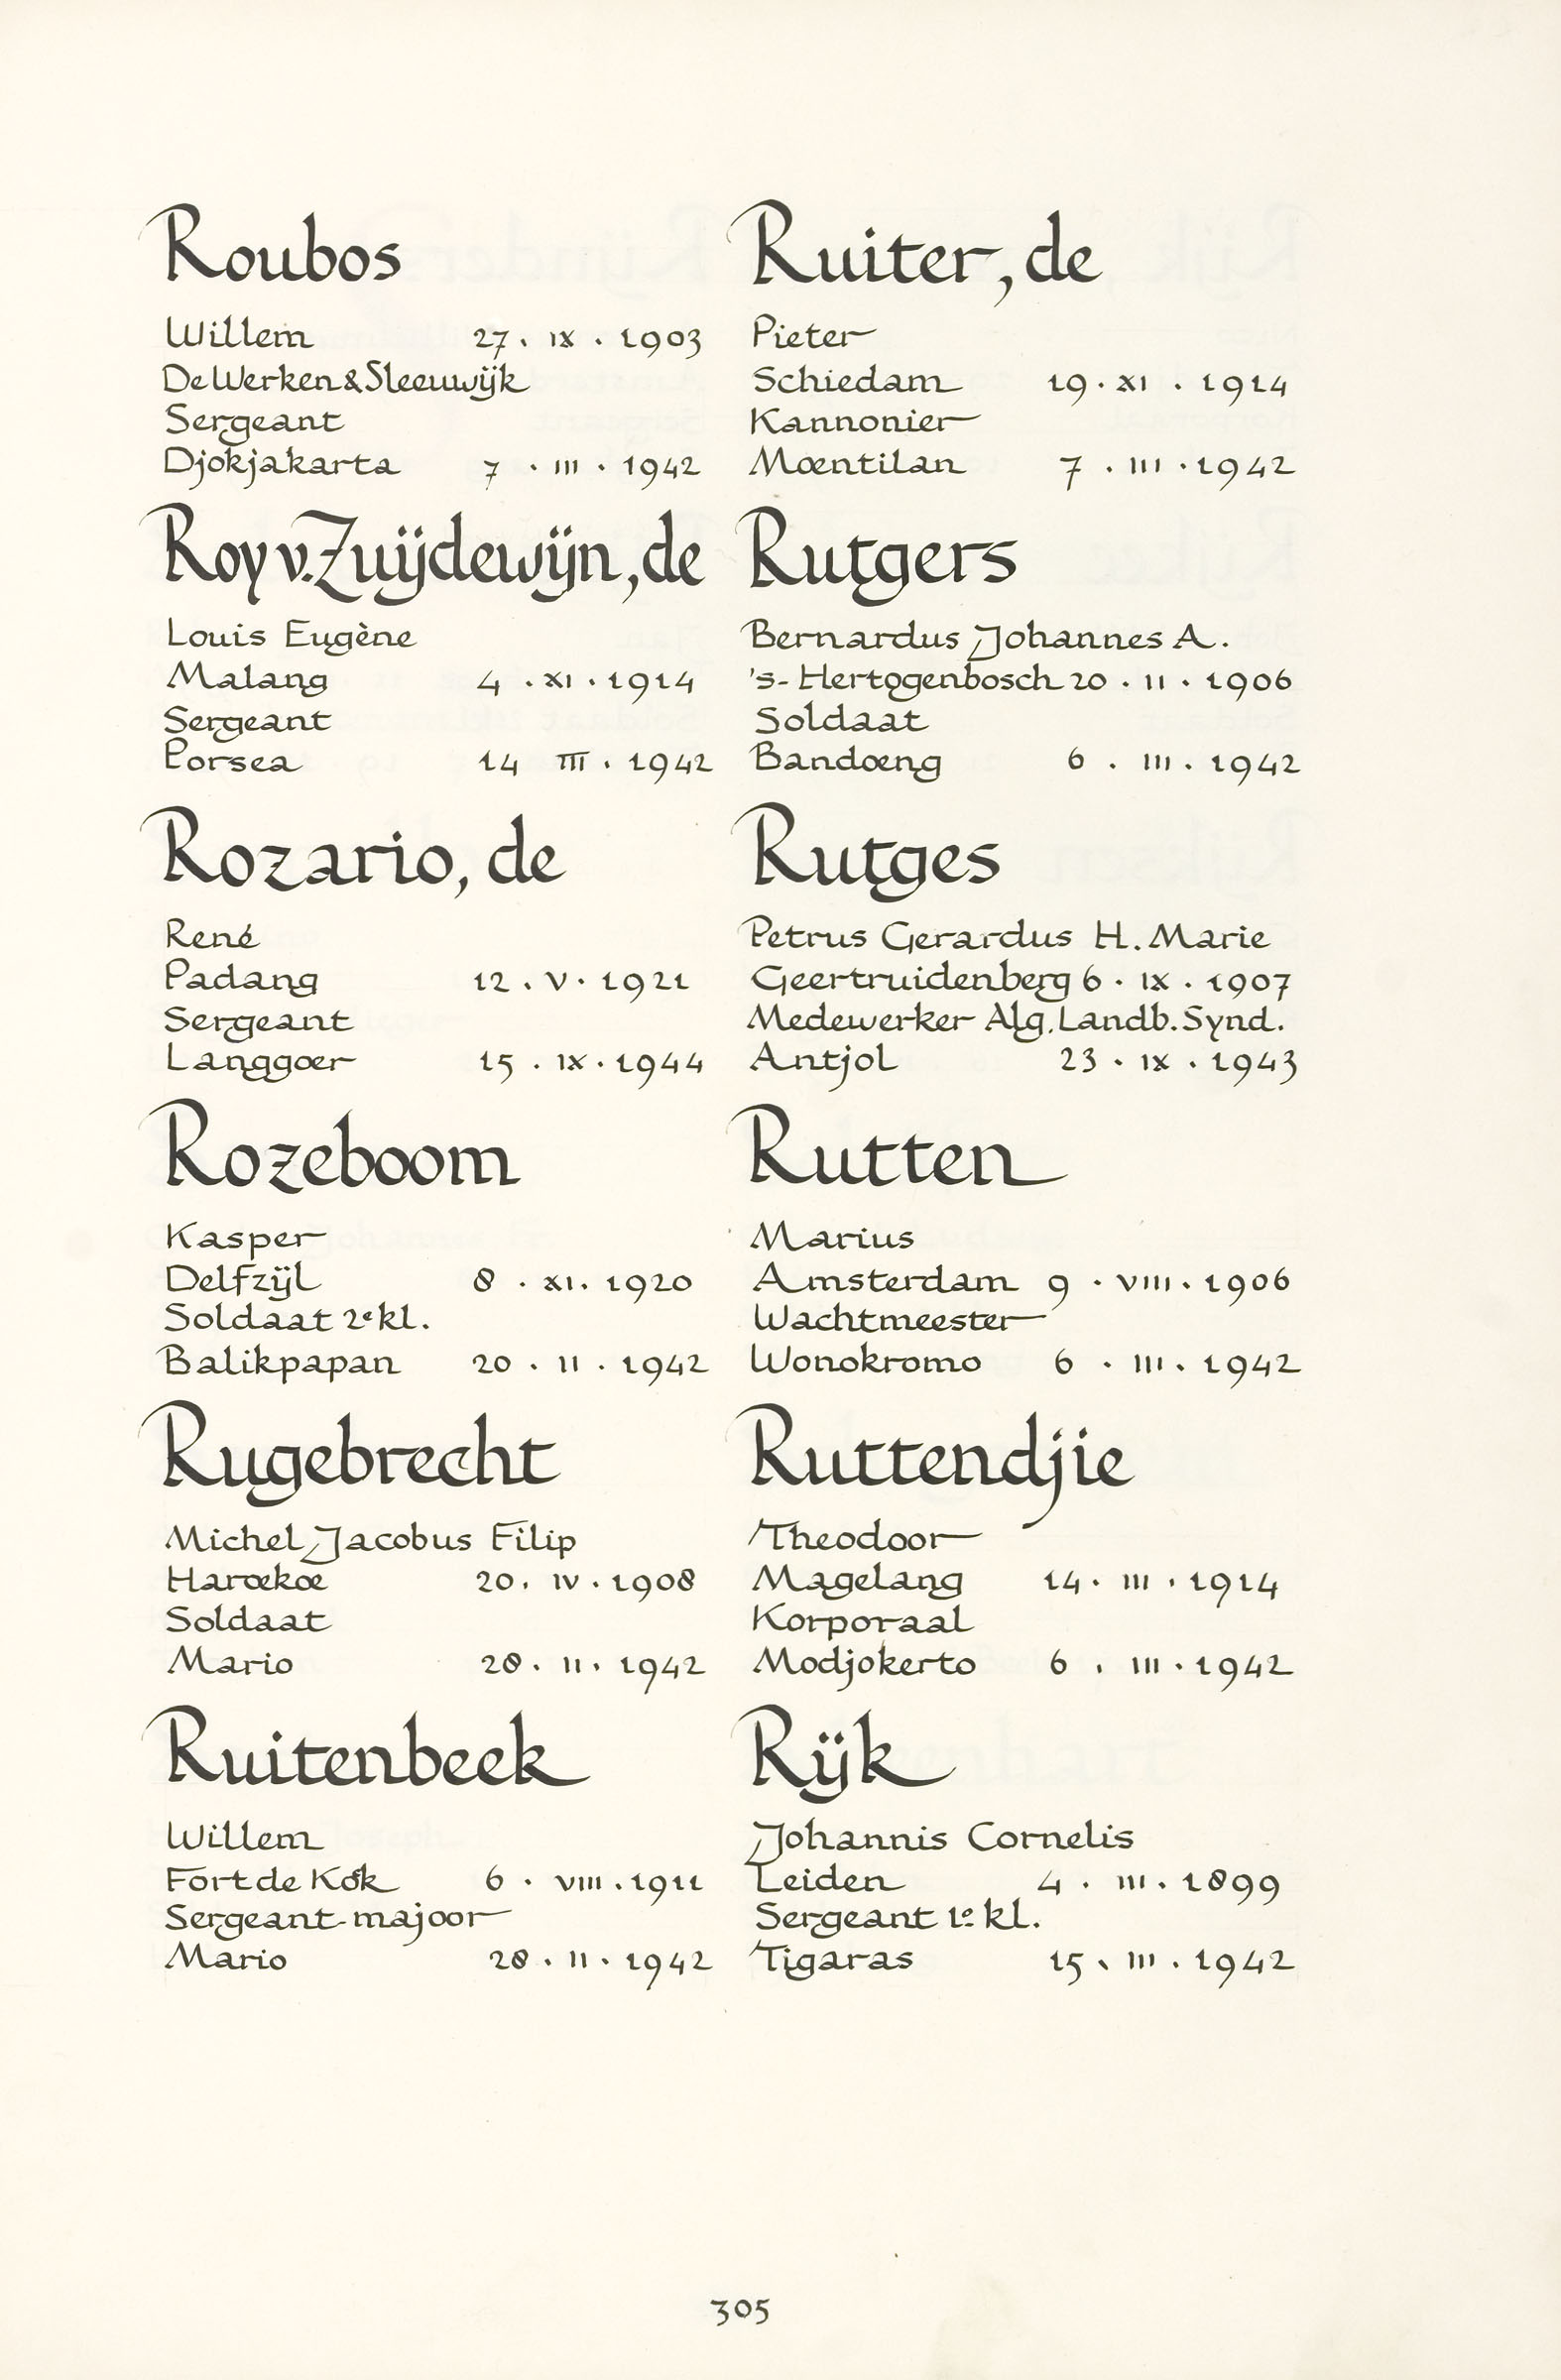 Roubos
Willem 27 . IX . 1903
De Werken & Sleeuwijk
Sergeant
Djokjakarta 7 . III . 1942
Roy v. Zuijdewijn, de
Louis Eugène
Malang 4 . XI . 1914
Sergeant
Porsea 14 III . 1942
Rozario, de
René
Padang 12 . V . 1921
Sergeant
Langgoer 15 . IX . 1944
Rozeboom
Kasper
Delfzijl 8 . XI . 1920
Soldaat 2e kl.
Balikpapan 20 . II . 1942
Rugebrecht
Michel Jacobus Filip
Haroekoe 20 . IV . 1908
Soldaat
Mario 28 . II . 1942
Ruitenbeek
Willem
Fort de Kok 6 . VIII . 1911
Sergeant-majoor
Mario 28 . II . 1942
Ruiter, de
Pieter
Schiedam 19 . XI . 1914
Kannonier
Moentilan 7 . III . 1942
Rutgers
Bernardus Johannes A.
's-Hertogenbosch 20 . II . 1906
Soldaat
Bandoeng 6 . III . 1942
Rutges
Petrus Gerardus H. Marie
Geertruidenberg 6 . IX . 1907
Medewerker Alg. Landb. Synd.
Antjol 23 . IX . 1943
Rutten
Marius
Amsterdam 9 . VIII . 1906
Wachtmeester
Wonokromo 6 . III . 1942
Ruttendjie
Theodoor
Magelang 14 . III . 1914
Korporaal
Modjokerto 6 . III . 1942
Rijk
Johannis Cornelis
Leiden 4 . III . 1899
Sergeant 1e kl.
Tigaras 15 . III . 1942
305